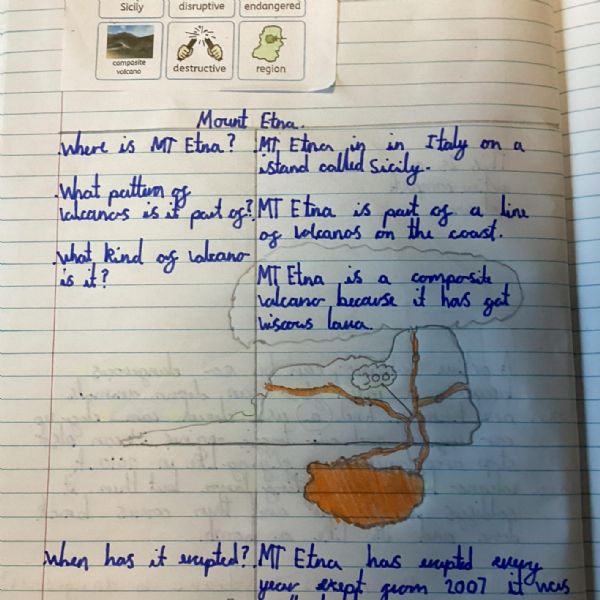 Sicily disruptive endangered
composite volcano destructive region
Mount Etna.
Where is MT Etna? MT Etna in in Italy on a
island called Sicily.
What pattern of
volcanos is it part of? MT Etna is part of a line
of volcanos on the coast.
What kind of volcano
is it? MT Etna is a composite
volcano because it has got
viscous lava.
300
When has it erupted? MT Etna has erupted every
year exept from 2007 it was